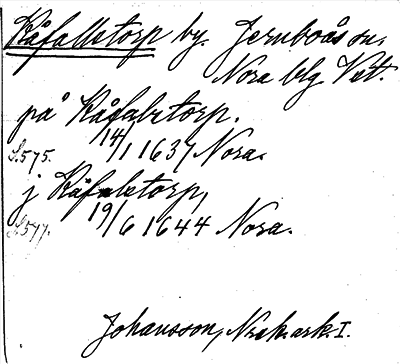 Råfalletorp by. Jernboås sn.
Nora blg Vstl.
på Råfaletorp.
14/1 1637 Nora.
S.575.
j Råfaletorp,
19/6 1644 Nora.
S.577.
Johansson, Nrak.ark. I.